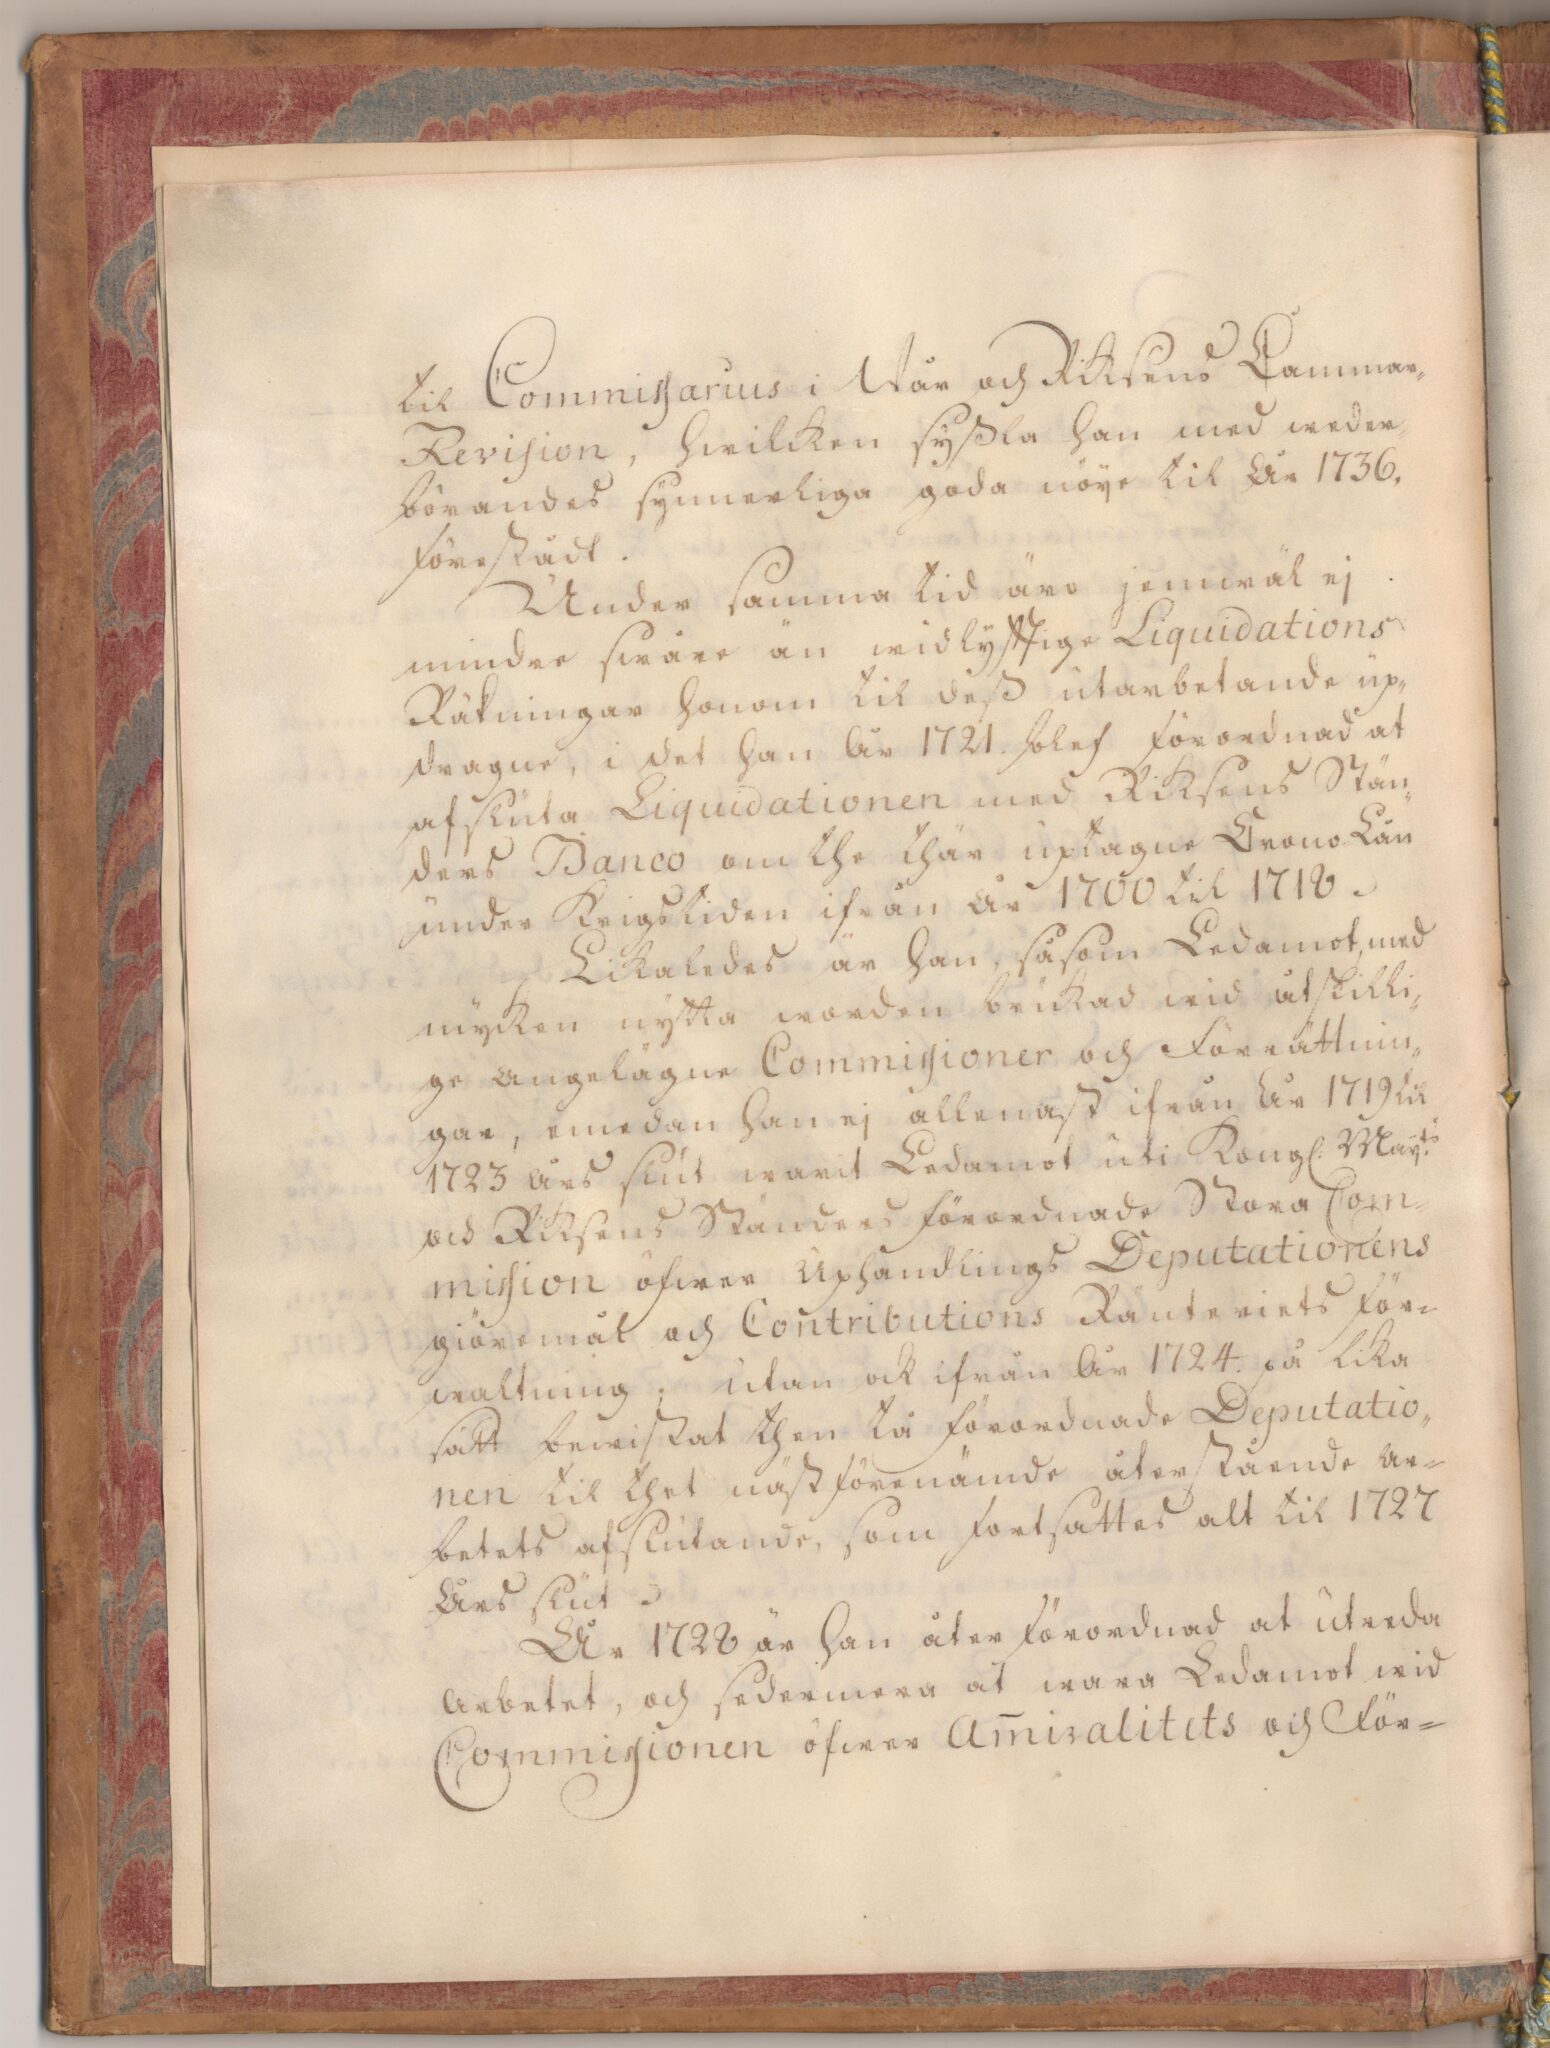 til Commissarius i Wår och Riksens Cammar-
Revision, hwilcken syßla han med weder-
börandes synnerliga goda nöye til År 1736.
förestådt.
Under samma tid äro jemwäl ej
mindre swåre än widlyfftige Liquidations
Räkningar honom til deß utarbetande up-
dragne, i det han År 1721. blef förordnad at
afsluta Liquidationen med Riksens Stän-
ders Banco om the thär uptagne Crono Lån
under Krigstiden ifrån År 1700 til 1718.
Likaledes är han, såsom Ledamot, med
mycken nytta worden brukad wid åtskilli-
ge angelägne Commissioner och Förrättnin-
gar, emedan han ej allenast ifrån År 1719 til
1723 års slut warit Ledamot uti Kongl: May:ts
och Riksens Ständers förordnade Stora Com-
mission öfwer Uphandlings Deputationens
giöremål och Contributions Ränteriets för-
waltning; utan ock ifrån År 1724. på lika
sätt bewistat then tå förordnade Deputatio-
nen til thet näst förenämde återstående Ar-
betets afslutande, som fortsattes alt til 1727
Års slut.
År 1728 är han åter förordnad at utreda
Arbetet, och sedermera at wara Ledamot wid
Commissionen öfwer Am̄iralitets och För-